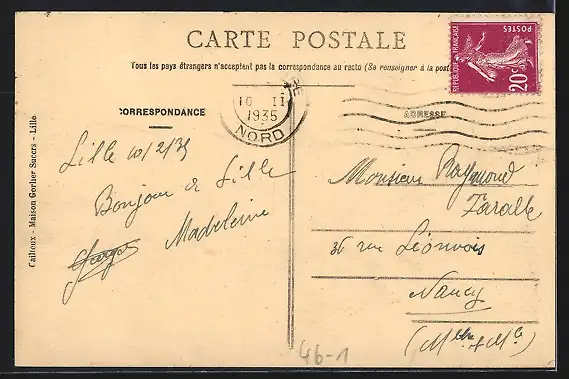 CARTE POSTALE
Tous les pays étrangers n'acceptent pas la correspondance au recto (Se renseigner à la poste
CORRESPONDANCE
ADRESSE
10 II
1935
NORD
RÉPUBLIQUE FRANÇAISE
POSTES
20c
Cailteux - Maison Gorlier Succrs - Lille
Lille 10/2/35
Bonjour de Lille
Madeleine
Georges
Monsieur Raymond
36 rue
Nancy
(Mthe et Mle)
46-1